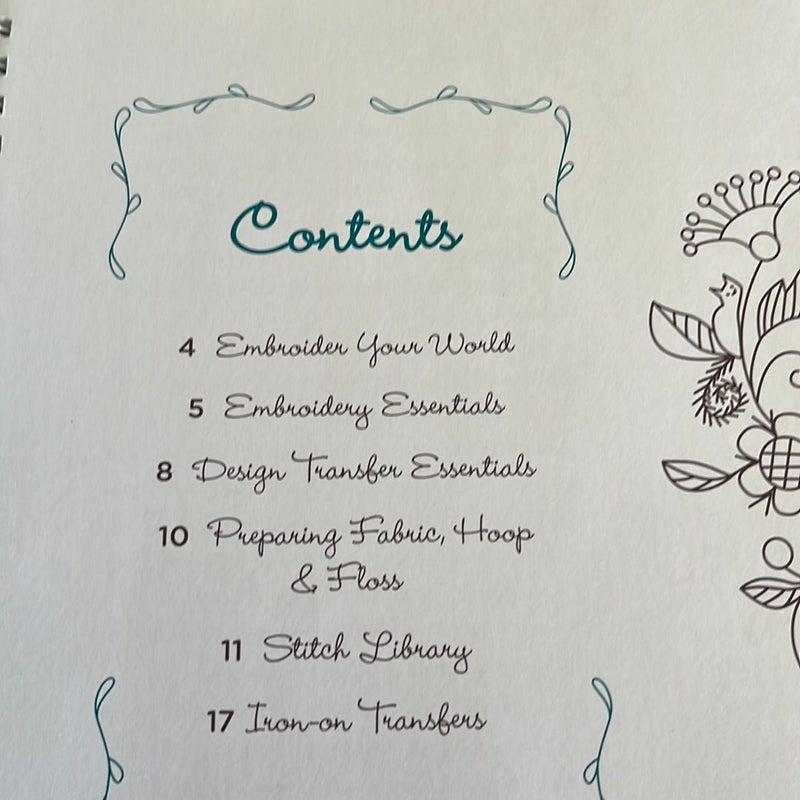 Contents
4 Embroider Your World
5 Embroidery Essentials
8 Design Transfer Essentials
10 Preparing Fabric, Hoop
& Floss
11 Stitch Library
17 Iron-on Transfers